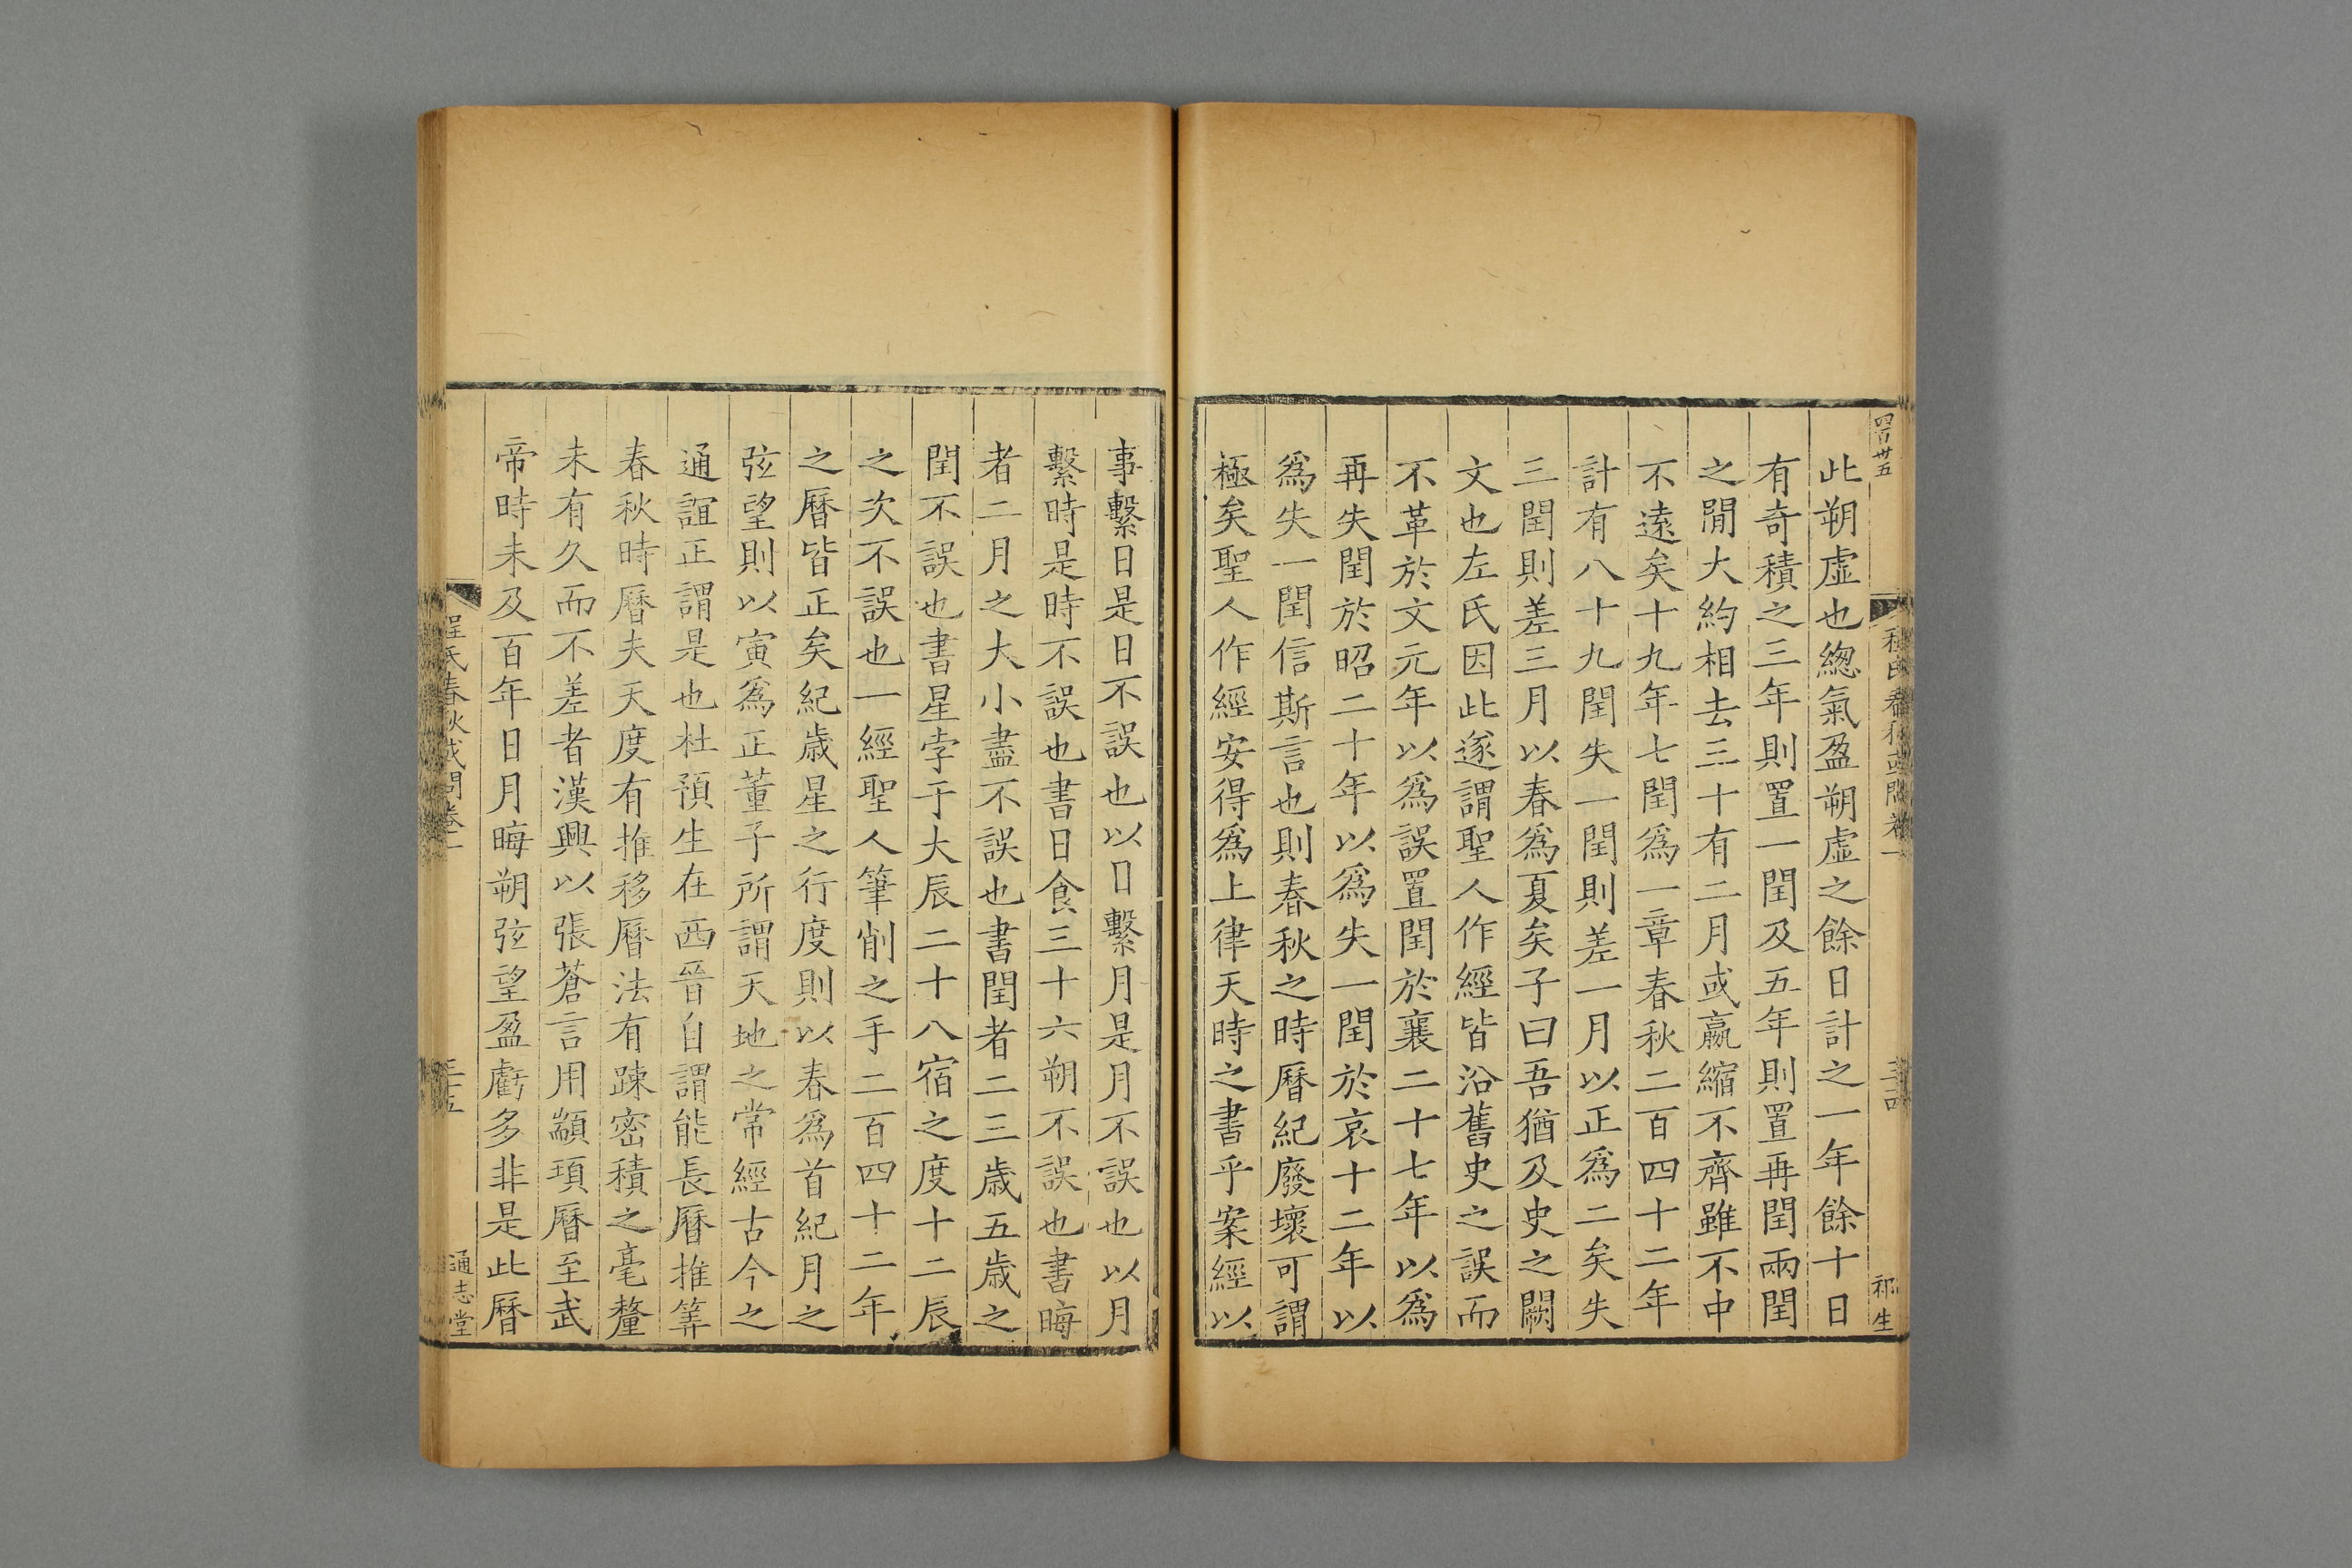 四百卅五
此朔虛也總氣盈朔虛之餘日計之一年餘十日
有奇積之三年則置一閏及五年則置再閏兩閏
之閒大約相去三十有二月或贏縮不齊雖不中
不遠矣十九年七閏爲一章春秋二百四十二年
計有八十九閏失一閏則差一月以正爲二矣失
三閏則差三月以春爲夏矣子曰吾猶及史之闕
文也左氏因此遂謂聖人作經皆沿舊史之誤而
不革於文元年以爲誤置閏於襄二十七年以爲
再失閏於昭二十年以爲失一閏於哀十二年以
爲失一閏信斯言也則春秋之時曆紀廢壞可謂
極矣聖人作經安得爲上律天時之書乎案經以
程氏春秋或問卷一
三四
祁生
事繫日是日不誤也以日繫月是月不誤也以月
繫時是時不誤也書日食三十六朔不誤也書晦
者二月之大小盡不誤也書閏者二三歲五歲之
閏不誤也書星孛于大辰二十八宿之度十二辰
之次不誤也一經聖人筆削之手二百四十二年
之曆皆正矣紀歲星之行度則以春爲首紀月之
弦望則以寅爲正董子所謂天地之常經古今之
通誼正謂是也杜預生在西晉自謂能長曆推筭
春秋時曆夫天度有推移曆法有踈密積之毫釐
未有久而不差者漢興以張蒼言用顓頊曆至武
帝時未及百年日月晦朔弦望盈虧多非是此曆
程氏春秋或問卷一
三十五
通志堂